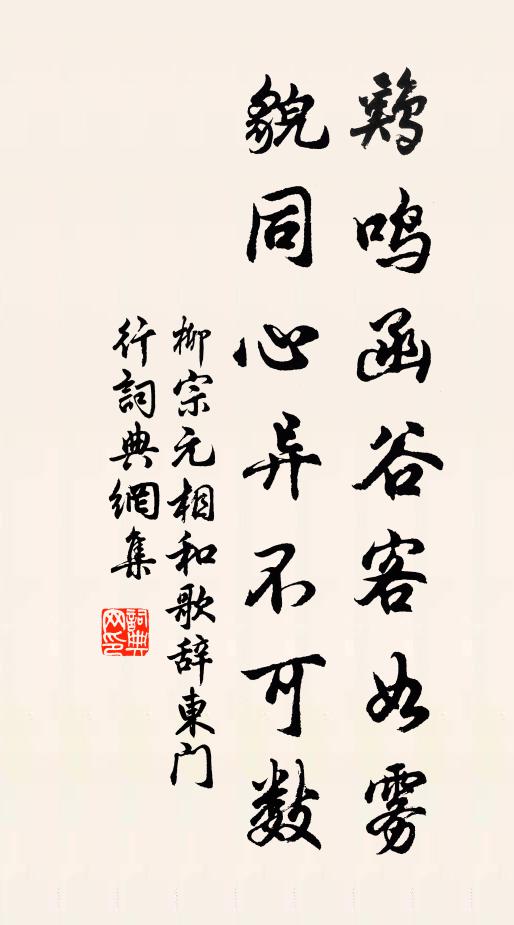 鷄鸣函谷客如雾
貌同心异不可数
柳宗元相和歌辞東门
行詞典網集
詞典
网印